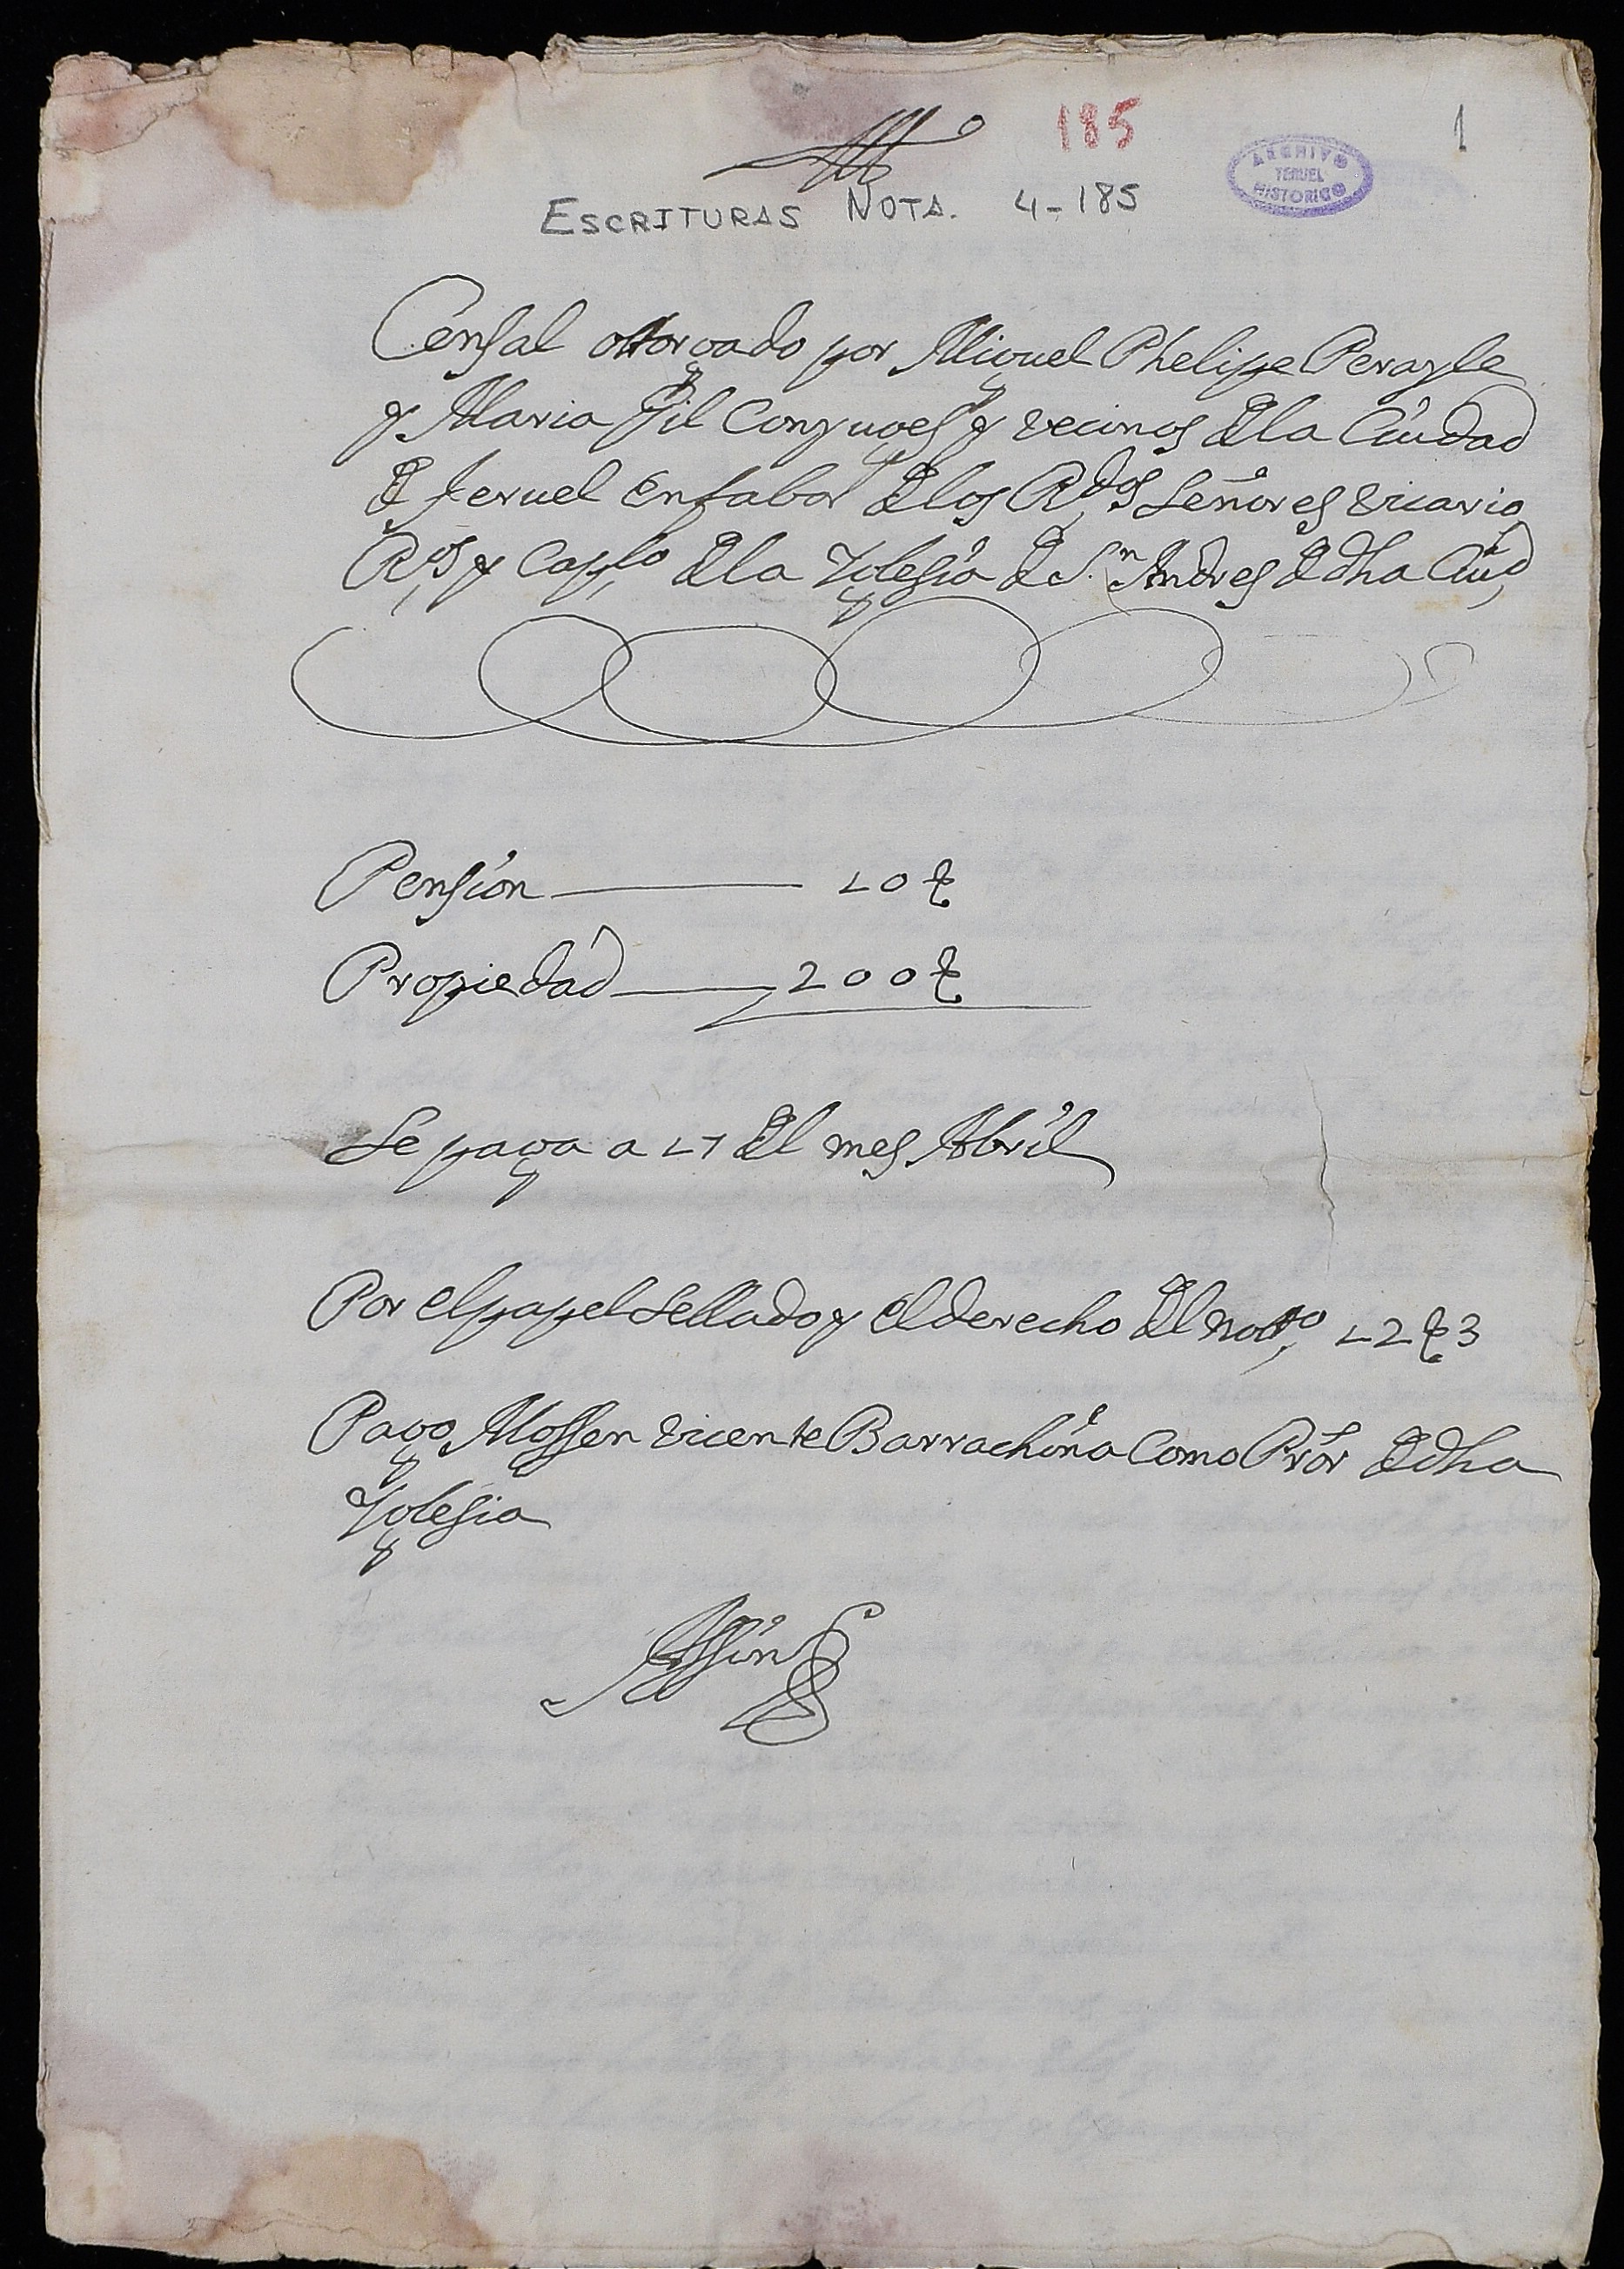 185
1
ARCHIVO
TERUEL
HISTORICO
ESCRITURAS NOTA. 4-185
Censal ottorgado por Miguel Phelipe Perayle
y Maria Gil Conyuges y vecinos de la Ciudad
de Teruel en fabor de los Rdos Señores Vicario
Rs y Caplo de la Yglesia de Sn Andres de dha Ciud
Pension 10 L
Propiedad 200 L
Se paga a 17 del mes Abril
Por el papel Sellado y el derecho del notto 12 L 3
Pago Mossen Vicente Barrachina Como Pror de dha
Yglesia